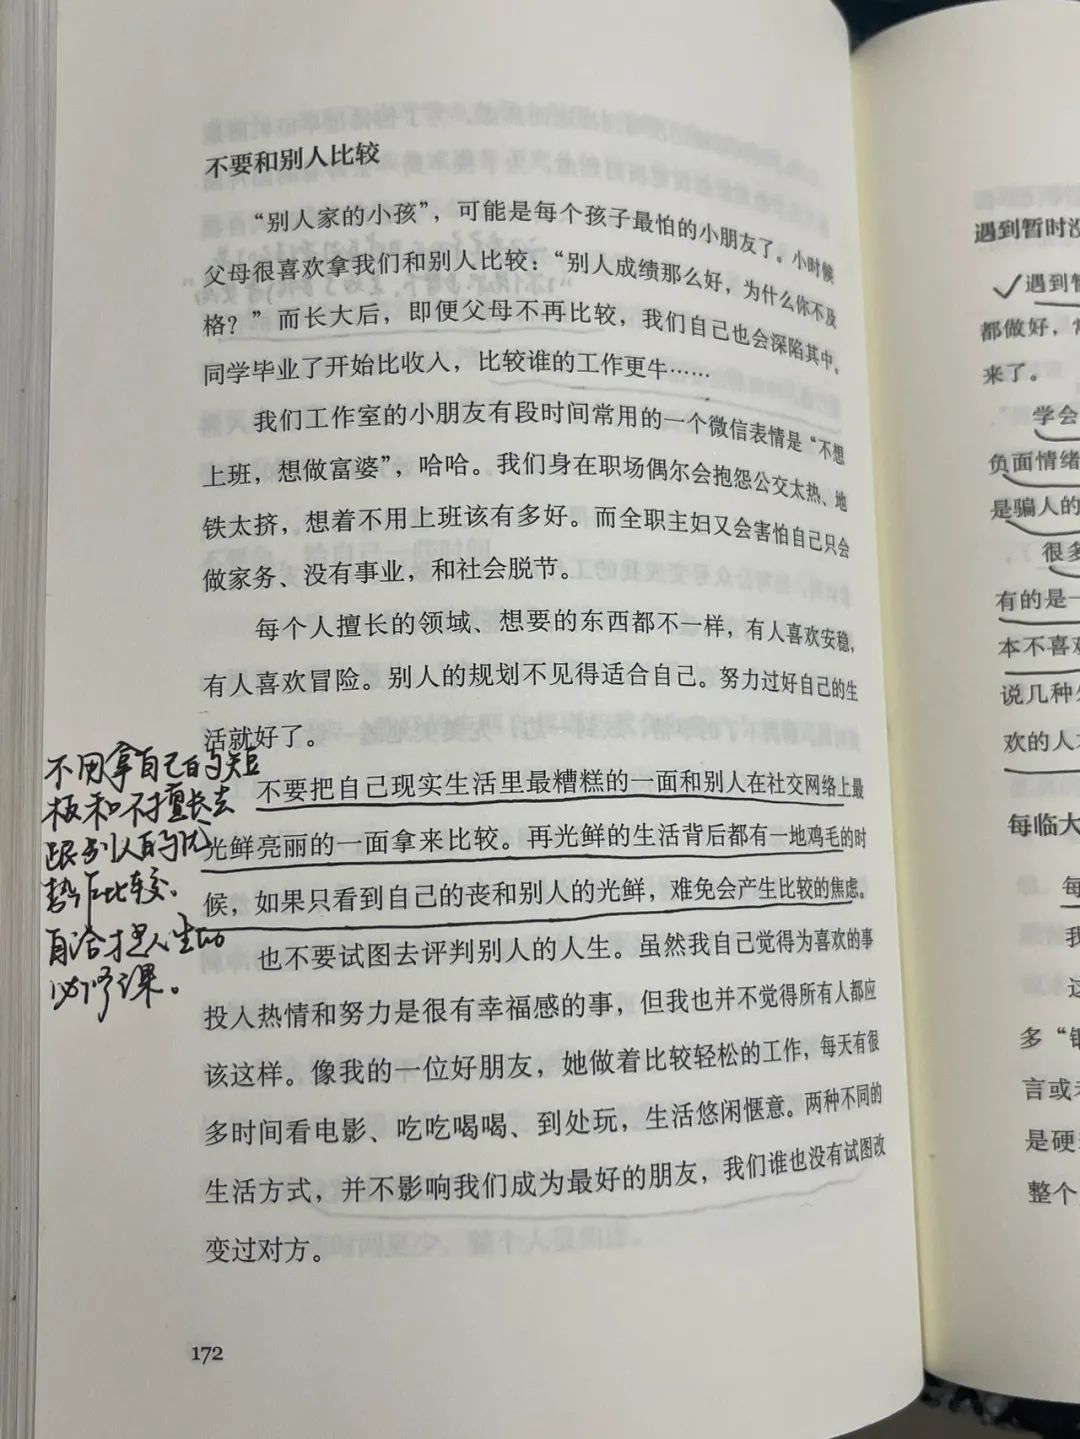 不要和别人比较
“别人家的小孩”，可能是每个孩子最怕的小朋友了。小时候
父母很喜欢拿我们和别人比较：“别人成绩那么好，为什么你不及
格？”而长大后，即便父母不再比较，我们自己也会深陷其中。
同学毕业了开始比收入，比较谁的工作更牛……
我们工作室的小朋友有段时间常用的一个微信表情是“不想
上班，想做富婆”，哈哈。我们身在职场偶尔会抱怨公交太热、地
铁太挤，想着不用上班该有多好。而全职主妇又会害怕自己只会
做家务、没有事业，和社会脱节。
每个人擅长的领域、想要的东西都不一样，有人喜欢安稳，
有人喜欢冒险。别人的规划不见得适合自己。努力过好自己的生
活就好了。
不要把自己现实生活里最糟糕的一面和别人在社交网络上最
光鲜亮丽的一面拿来比较。再光鲜的生活背后都有一地鸡毛的时
候，如果只看到自己的丧和别人的光鲜，难免会产生比较的焦虑。
也不要试图去评判别人的人生。虽然我自己觉得为喜欢的事
投入热情和努力是很有幸福感的事，但我也并不觉得所有人都应
该这样。像我的一位好朋友，她做着比较轻松的工作，每天有很
多时间看电影、吃吃喝喝、到处玩，生活悠闲惬意。两种不同的
生活方式，并不影响我们成为最好的朋友，我们谁也没有试图改
变过对方。
172
不用拿自己的短
板和不擅长去
跟别人的优
势作比较。
自洽才是人生的
必修课。
遇到暂时没
遇到暂
都做好，
来了。
学会
负面情绪
是骗人的
很多
有的是一
本不喜欢
说几种
欢的人
每临大
每
我
这
多“
言或
是硬
整个